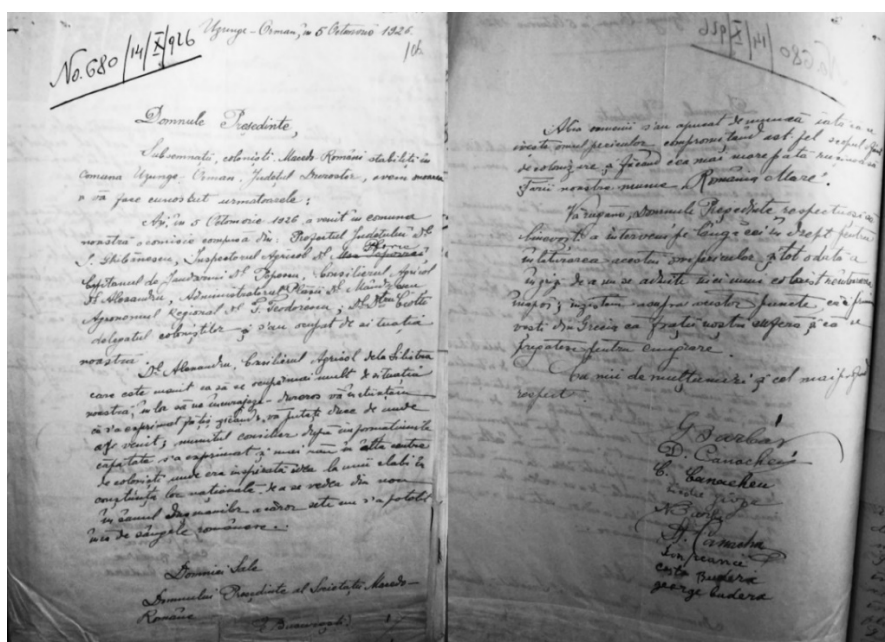 Uzunge-Orman, în 5 Octomvrie 1926.
No. 680/14/X/926
Domnule Președinte,
Subsemnații, coloniști Macedo-Români stabiliți în
comuna Uzunge-Orman, Județul Durostor, avem onoare
a vă face cunoscut urmatoarele:
Azi, în 5 Octomvrie 1926, a venit în comuna
noastră o comisie compusă din: Prefectul Județului Dl.
Ghibănescu, Inspectorul Agricol Dl.
Capitanul de Jandarmi Dl. Popescu, Consilierul Agricol
Dl. Alexandru, Administratorul Plasii Dl.
Agronomul Regional Dl. G. Teodorescu, Dl.
delegatul coloniștilor și s'au ocupat de situatia
noastră.
Dl. Alexandru, Consilierul Agricol dela Silistra
care este menit ca să se ocupe mai mult de situatia
noastră, în loc să ne încurajeze
că s'a exprimat zicând, vă puteți duce de unde
ați venit; numitul consilier după informatiunile
căpătate s'a exprimat și mai rău în alte centre
de coloniști unde era inspirată idea la unii slabi în
conștiința lor națională de a se vedea din nou
în ghiarele dușmanilor a căror sete nu s'a potolit
încă de sângele românesc.
Domniei Sale
Domnului Președinte al Societății Macedo-
Române
București
Abia oamenii s'au apucat de muncă iată că se
ivește omul periculos compromițând astfel scopul
de colonizare și făcând cea mai mare pată rușinoasă
Țarii noastre nume "România Mare".
Vă rugăm, Domnule Președinte, respectuos să
binevoiți a interveni pe lângă cei în drept pentru
înlăturarea acestui om periculos și tot odată a
de a nu se admite nici unui colonist reîntoarcerea
înapoi; insistăm asupra acestor puncte, că
vesti din Grecia că frații nostri sufera și că se
pregătesc pentru emigrare.
Cu mii de mulțumiri și cel mai profund
respect
G Barbar
D. Canacheu
C. Canacheu
N.
St. Camcha
Costa Budera
george budera